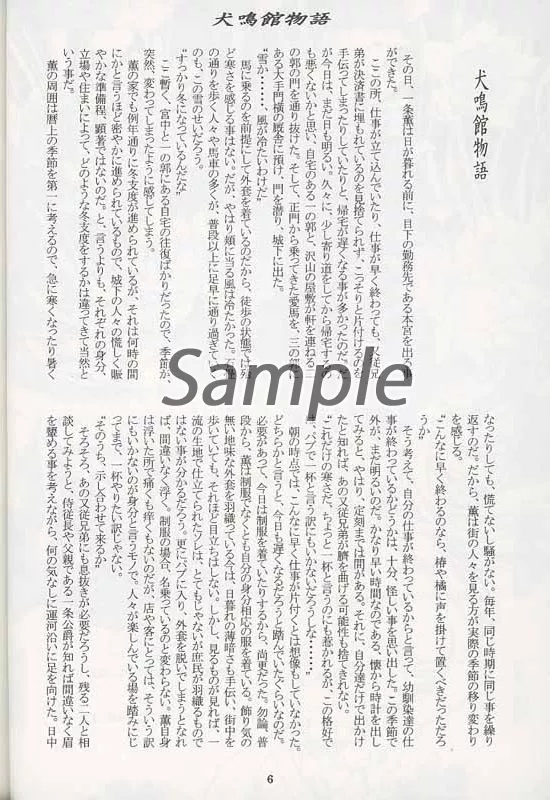 犬鳴館物語
犬鳴館物語
その日、一条薫は日が暮れる前に、目下の勤務先である本宮を出る事
ができた。
ここの所、仕事が立て込んでいたり、仕事が早く終わっても、又従兄
弟が決済書に埋もれているのを見捨てられず、こっそりと片付けるのを
手伝ってしまったりしていたりと、帰宅が遅くなる事が多かったのだ。だ
が今日は、まだ日も明るい。久々に、少し寄り道をしてから帰宅するの
も悪くないかと思い、自宅のある一の郭と、沢山の屋敷が軒を連ねる二
の郭の門を通り抜けた。そして、正門から乗ってきた愛馬を、三の郭に
ある大手門横の厩舎に預け、門を潜り、城下に出た。
“雪か………、風が冷たいわけだ”
馬に乗るのを前提にして外套を着ているのだから、徒歩の状態では殆
ど寒さを感じる事はない。だが、やはり頬に当る風は冷たかった。石畳
の通りを歩く人々や馬車の多くが、普段以上に足早に通り過ぎていく
のも、この雪のせいだろう。
“すっかり冬になっているんだな”
ここ暫く、宮中と一の郭にある自宅の往復ばかりだったので、季節が、
突然、変わってしまったように感じてしまう。
薫の家でも例年通りに冬支度が進められているが、それは何時の間
にかと言うほど密やかに進められているもので、城下の人々の慌しく賑
やかな準備程、顕著ではないのだ。と、言うよりも、それぞれの身分、
立場や住まいによって、どのような冬支度をするかは違ってきて当然と
いう事だ。
薫の周囲は暦上の季節を第一に考えるので、急に寒くなったり暑く
なったりしても、慌てないし騒がない。毎年、同じ時期に同じ事を繰り
返すのだ。だから、薫は街の人々を見る方が実際の季節の移り変わり
を感じる。
“こんなに早く終わるのなら、椿や橘に声を掛けて置くべきだっただろ
うか”
そう考えて、自分の仕事が終わっているからと言って、幼馴染達の仕
事が終わっているかどうかは、十分、怪しい事を思い出した。この季節で
外が、まだ明るいのだ。かなり早い時間なのである。懐から時計を出し
てみると、やはり、定刻までは間がある。それに、自分達だけで出かけ
たと知れば、あの又従兄弟が臍を曲げる可能性も捨てきれない。
“これだけの寒さだ、ちょっと一杯と言うのにも惹かれるが、この格好で
は、パブで一杯と言う訳にもいかないだろうしな………”
朝の時点では、こんなに早く仕事が片付くとは想像もしていなかった。
どちらかと言うと、今日も遅くなるだろうと踏んでいたぐらいなのだ。
必要があって、今日は制服を着ていたりするから、尚更だった。勿論、普
段から、薫は制服でなくとも自分の身分相応の服を着ている。飾り気の
無い地味な外套を羽織っている今は、日暮れの薄暗さも手伝い、街中を
歩いていても、それほど目立ちはしない。しかし、見るものが見れば、一
流の生地で仕立てられたソレは、とてもじゃないが庶民が羽織るもので
はない事が分かるだろう。更にパブに入り、外套を脱いでしまうとなれ
ば、間違いなく浮く。制服の場合、名乗っているのと変わらない。薫自身
は浮いた所で痛くも痒くもないのだが、店や客にとっては、そういう訳
にもいかないのが身分と言うモノで、人々が楽しんでいる場を踏みにじ
ってまで、一杯やりたい訳じゃない。
“そのうち、示し合わせて来るか”
そろそろ、あの又従兄弟にも息抜きが必要だろうし、残る二人と相
談してみようと、侍従長や父親である一条公爵が知れば間違いなく眉
を顰める事を考えながら、何の気なしに運河沿いに足を向けた。日中
Sample
6